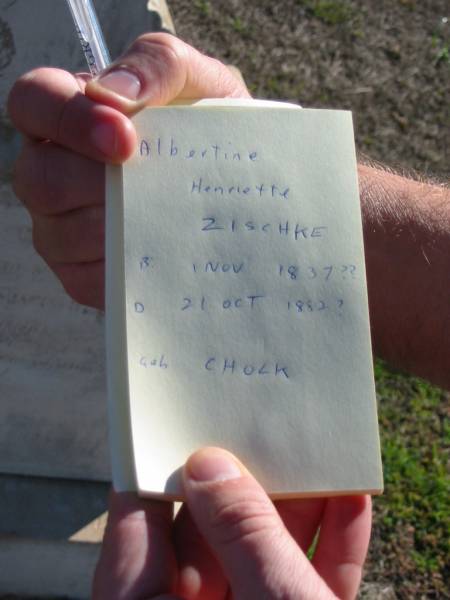 Albertine
Henriette
ZISCHKE
B. 1 NOV 1837??
D 21 OCT 1882?
Geb CHOLK